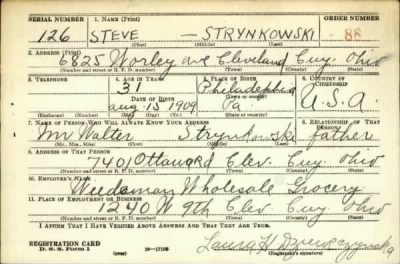 SERIAL NUMBER 1. NAME (Print) ORDER NUMBER
126 STEVE — STRYNKOWSKI 88
(First) (Middle) (Last)
2. ADDRESS (Print)
6825 Worley ave Cleveland Cuy. Ohio
(Number and street or R. F. D. number) (Town) (County) (State)
3. TELEPHONE 4. AGE IN YEARS 5. PLACE OF BIRTH 6. COUNTRY OF CITIZENSHIP
31 Philadelphia
DATE OF BIRTH (Town or county)
Aug-13 1909 Pa U.S.A.
(Exchange) (Number) (Mo.) (Day) (Yr.) (State or country)
7. NAME OF PERSON WHO WILL ALWAYS KNOW YOUR ADDRESS 8. RELATIONSHIP OF THAT PERSON
Mr Walter Strynkowski father
(Mr., Mrs., Miss) (First) (Middle) (Last)
9. ADDRESS OF THAT PERSON
7401 Ottawa Rd Clev. Cuy. Ohio
(Number and street or R. F. D. number) (Town) (County) (State)
10. EMPLOYER'S NAME
Weedaman Wholesale Grocery
11. PLACE OF EMPLOYMENT OR BUSINESS
1240 W 9th Clev. Cuy Ohio
(Number and street or R. F. D. number) (Town) (County) (State)
I AFFIRM THAT I HAVE VERIFIED ABOVE ANSWERS AND THAT THEY ARE TRUE.
REGISTRATION CARD
D. S. S. Form 1 16—17105
(Registrant's signature)